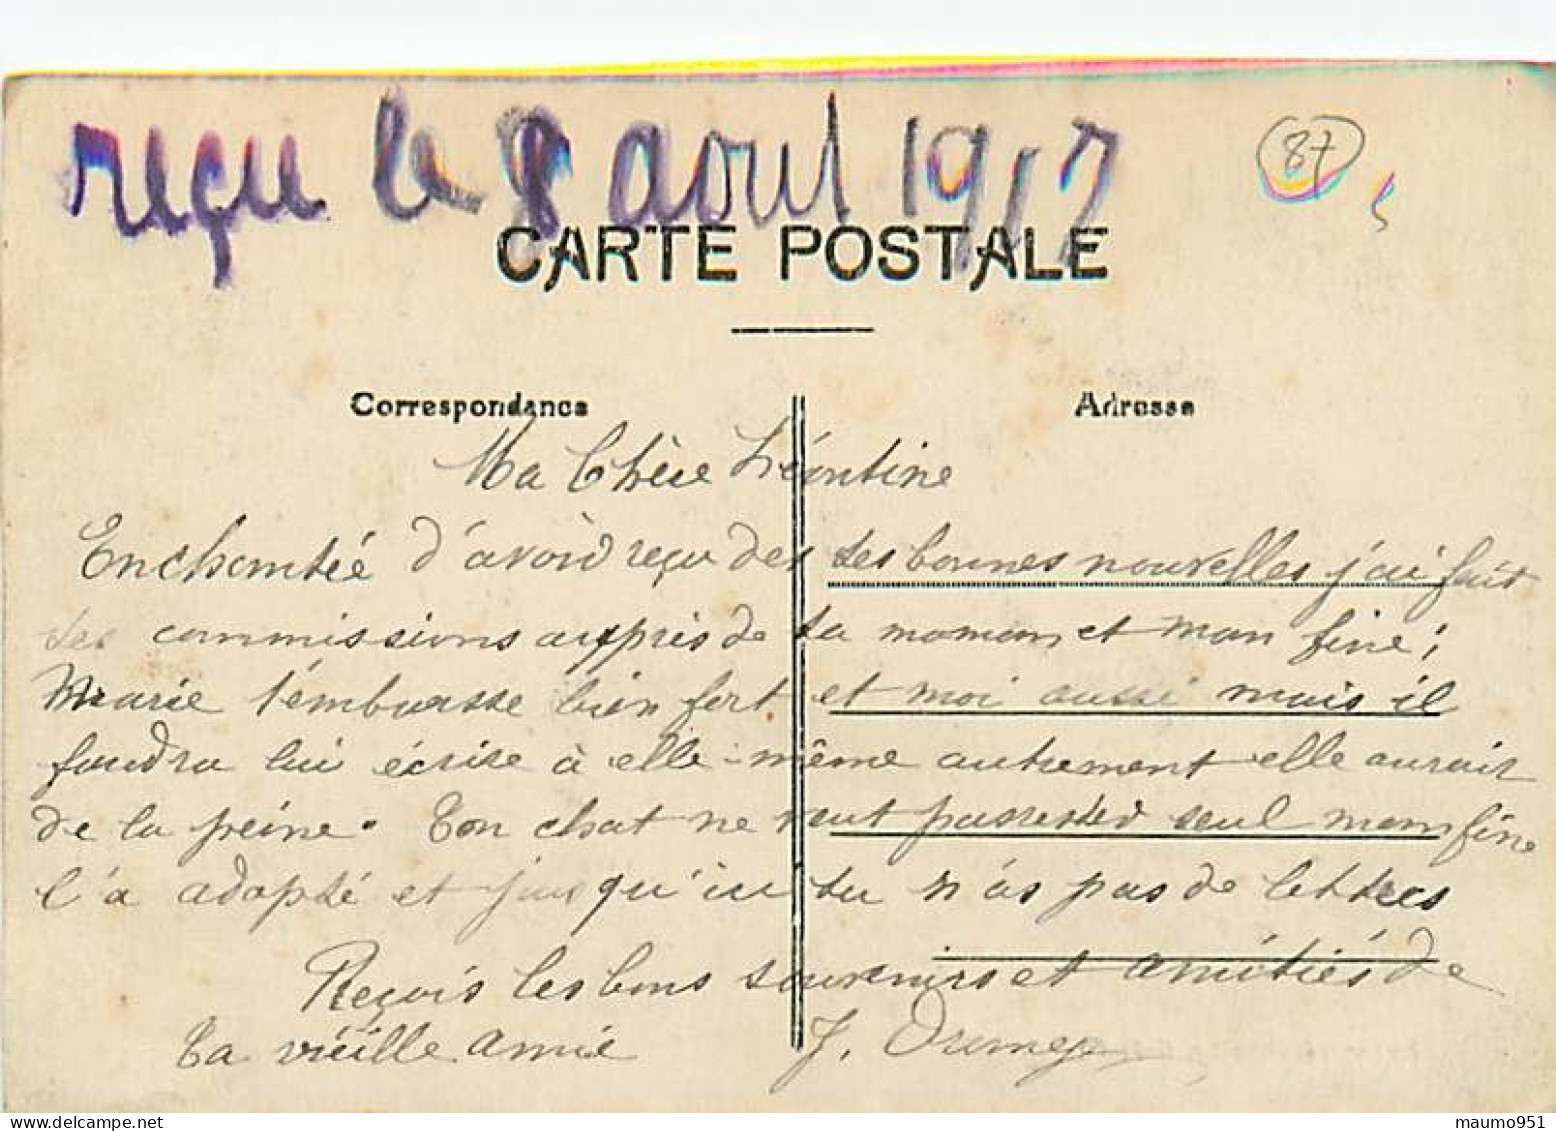 reçu le 8 aout 1917
87
CARTE POSTALE
Correspondance
Adresse
Ma Chère Léontine
Enchantée d'avoir reçu des tes bonnes nouvelles j'ai fait
tes commissions auprès de ta maman et man fine;
Marie t'embrasse bien fort et moi aussi mais il
faudra lui écrire à elle-même autrement elle aurait
de la peine. Ton chat ne veut seul mam fine
l'a adopté et jusqu'ici tu n'as pas de lettres
Reçois les bons souvenirs et amitiés de
Ta vieille amie J.
maumo951